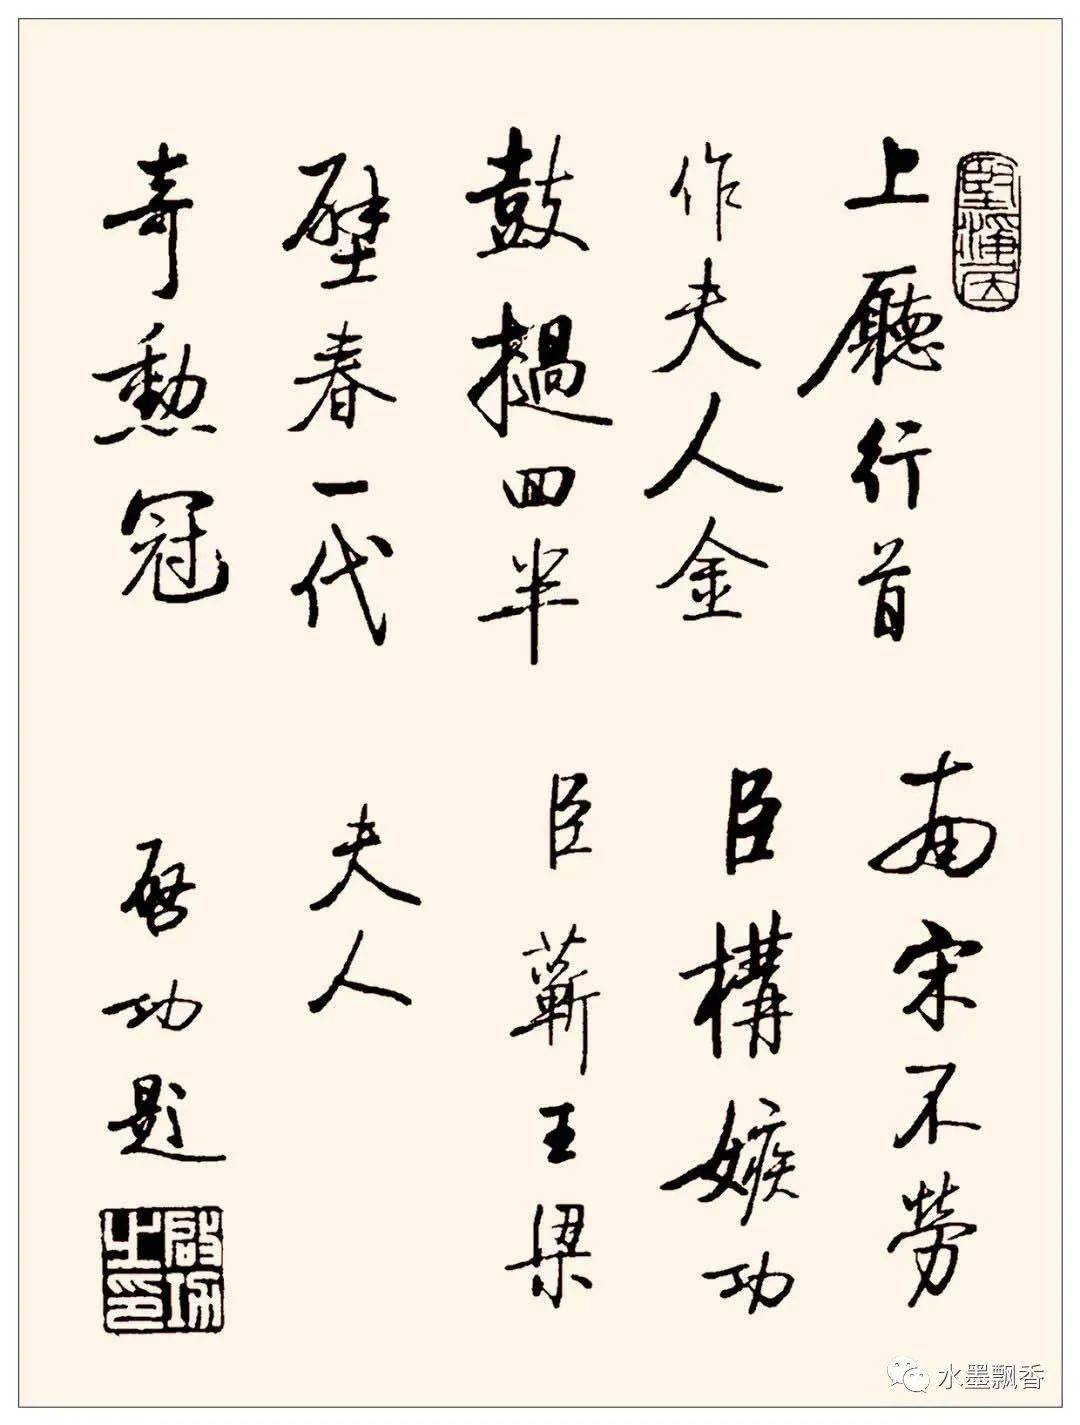 堅淨居
上廳行首
作夫人金
鼓撾回半
壁春一代
奇勳冠
南宋不勞
臣構嫉功
臣蘄王梁
夫人
啓功題
啟功之印
水墨飘香